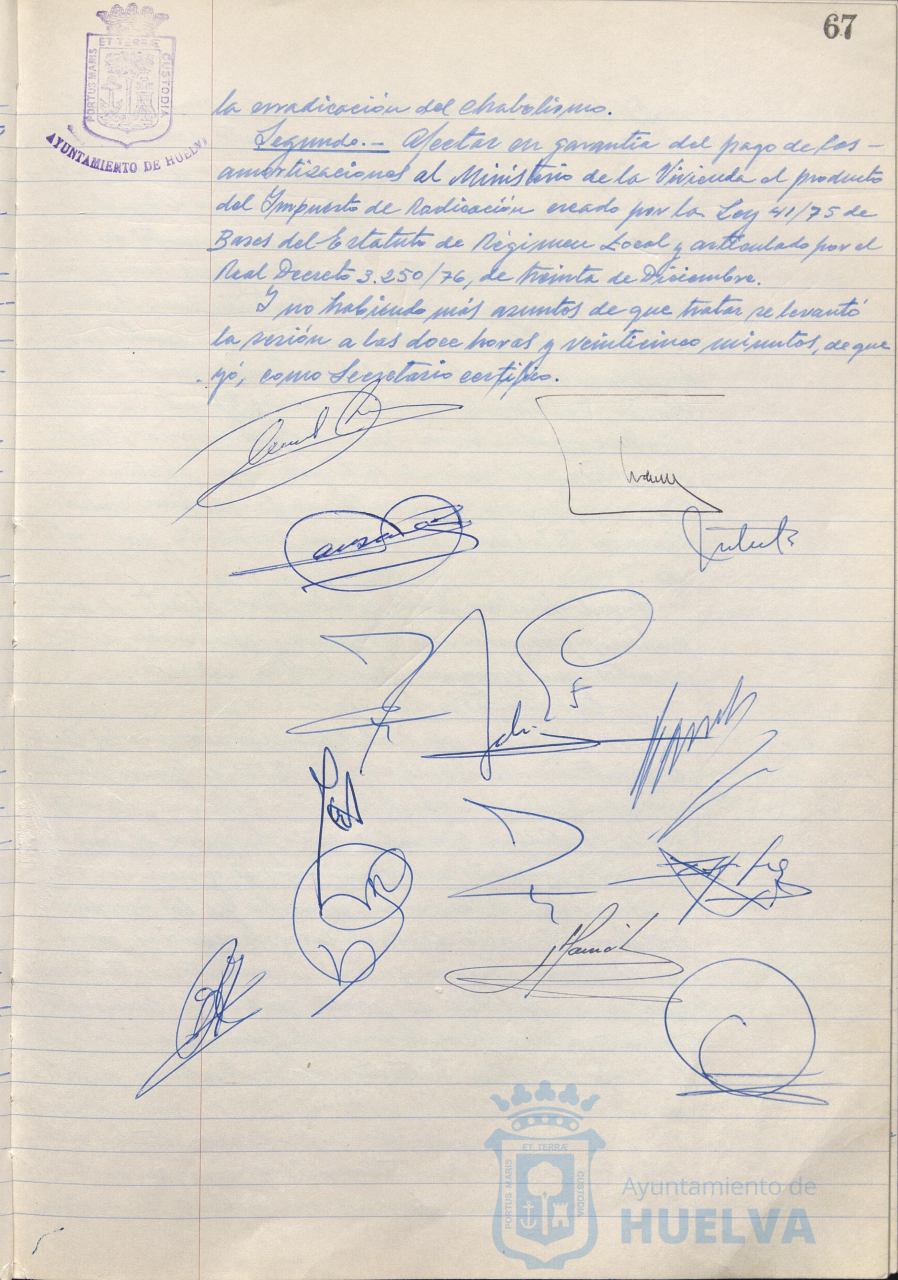 67
ET TERRÆ
PORTUS MARIS
CUSTODIA
AYUNTAMIENTO DE HUELVA
la erradicación del chabolismo.
Segundo.- Afectar en garantía del pago de las -
amortizaciones al Ministerio de la Vivienda el producto
del Impuesto de Radicación creado por la Ley 41/75 de
Bases del Estatuto de Régimen Local y articulado por el
Real Decreto 3.250/76, de treinta de Diciembre.
Y no habiendo más asuntos de que tratar se levantó
la sesión a las doce horas y veinticinco minutos, de que
yó, como Secretario certifico.
ET TERRÆ
PORTUS MARIS
CUSTODIA
Ayuntamiento de
HUELVA